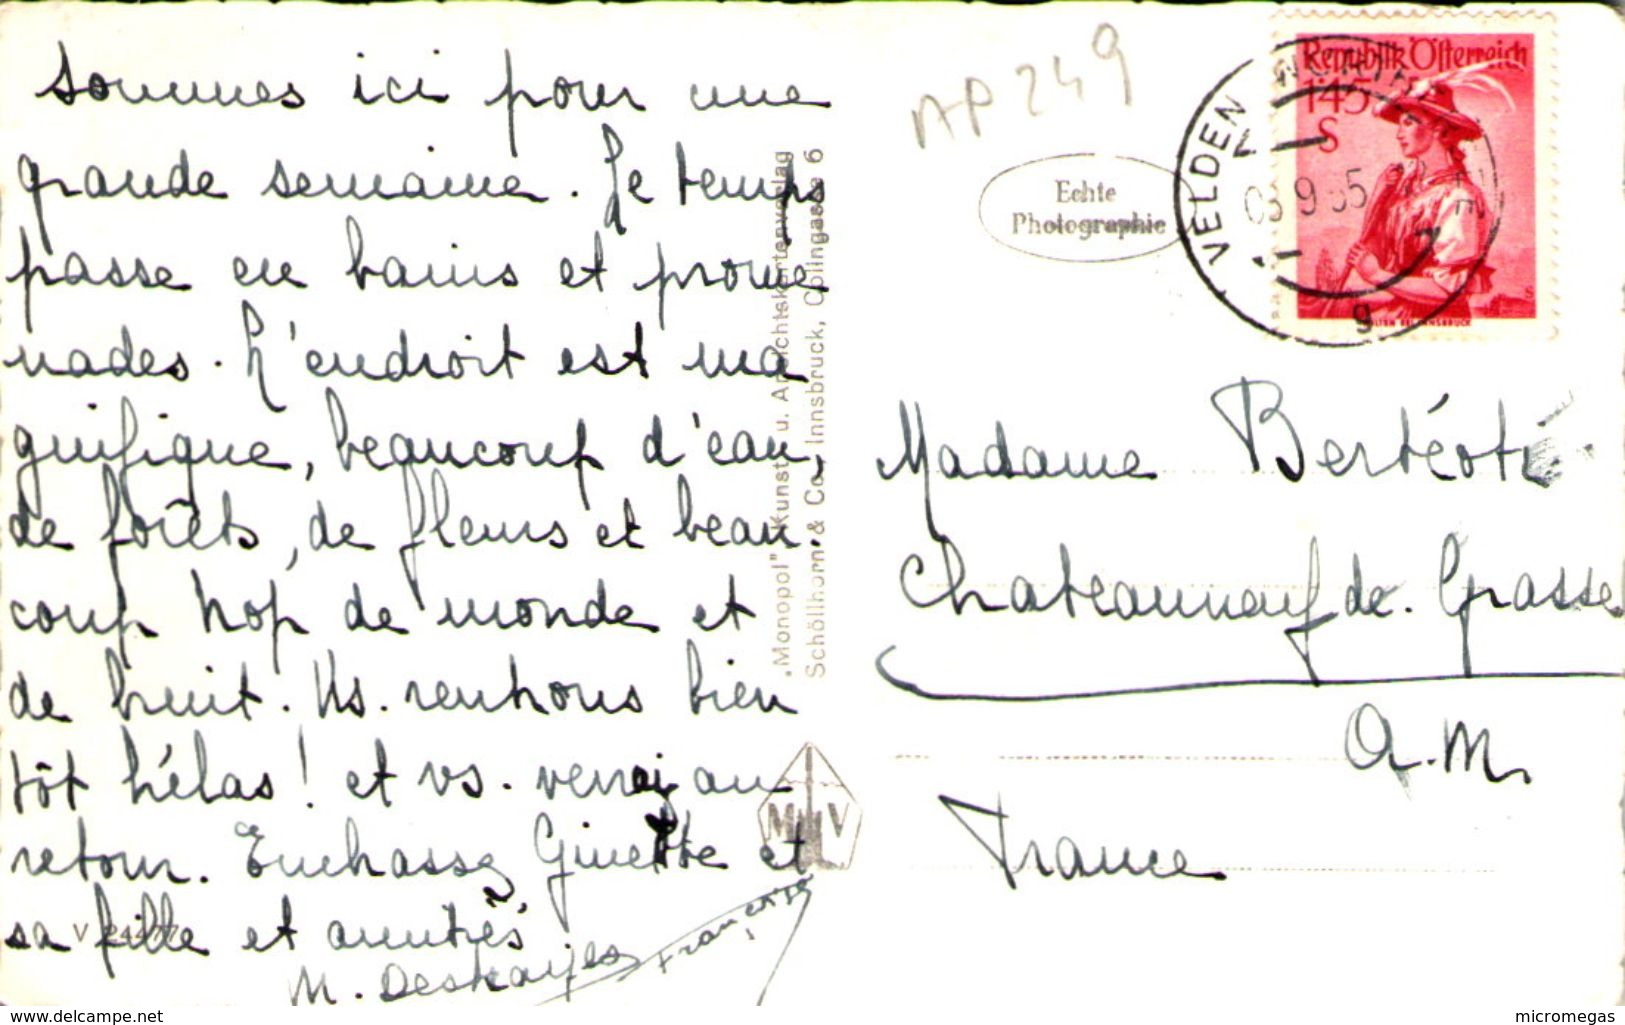 Sommes ici pour une
grande semaine. Le temps
passe en bains et prome
nades. L'endroit est ma
gnifique, beaucoup d'eau,
de forêts, de fleurs et beau-
coup trop de monde et
de bruit. Ns. rentrons bien
tôt hélas! et vs. verrai au
retour. Embrassez Ginette et
sa fille et amitiés
M. Deshayes
Françoise
V 24477
"Monopol" Kunst- u. Ansichtskartenverlag
Schöllhorn & Co., Innsbruck, Colingasse 6
M V
AP 249
Echte
Photographie
Republik Österreich
1'45
S
VELDEN
9
Madame Bertéoti
Chateauneuf de. Grasse
A.M.
France
www.delcampe.net
micromegas